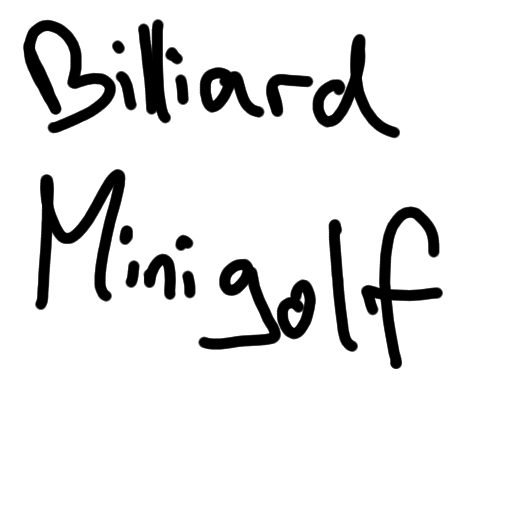 Billiard
Minigolf